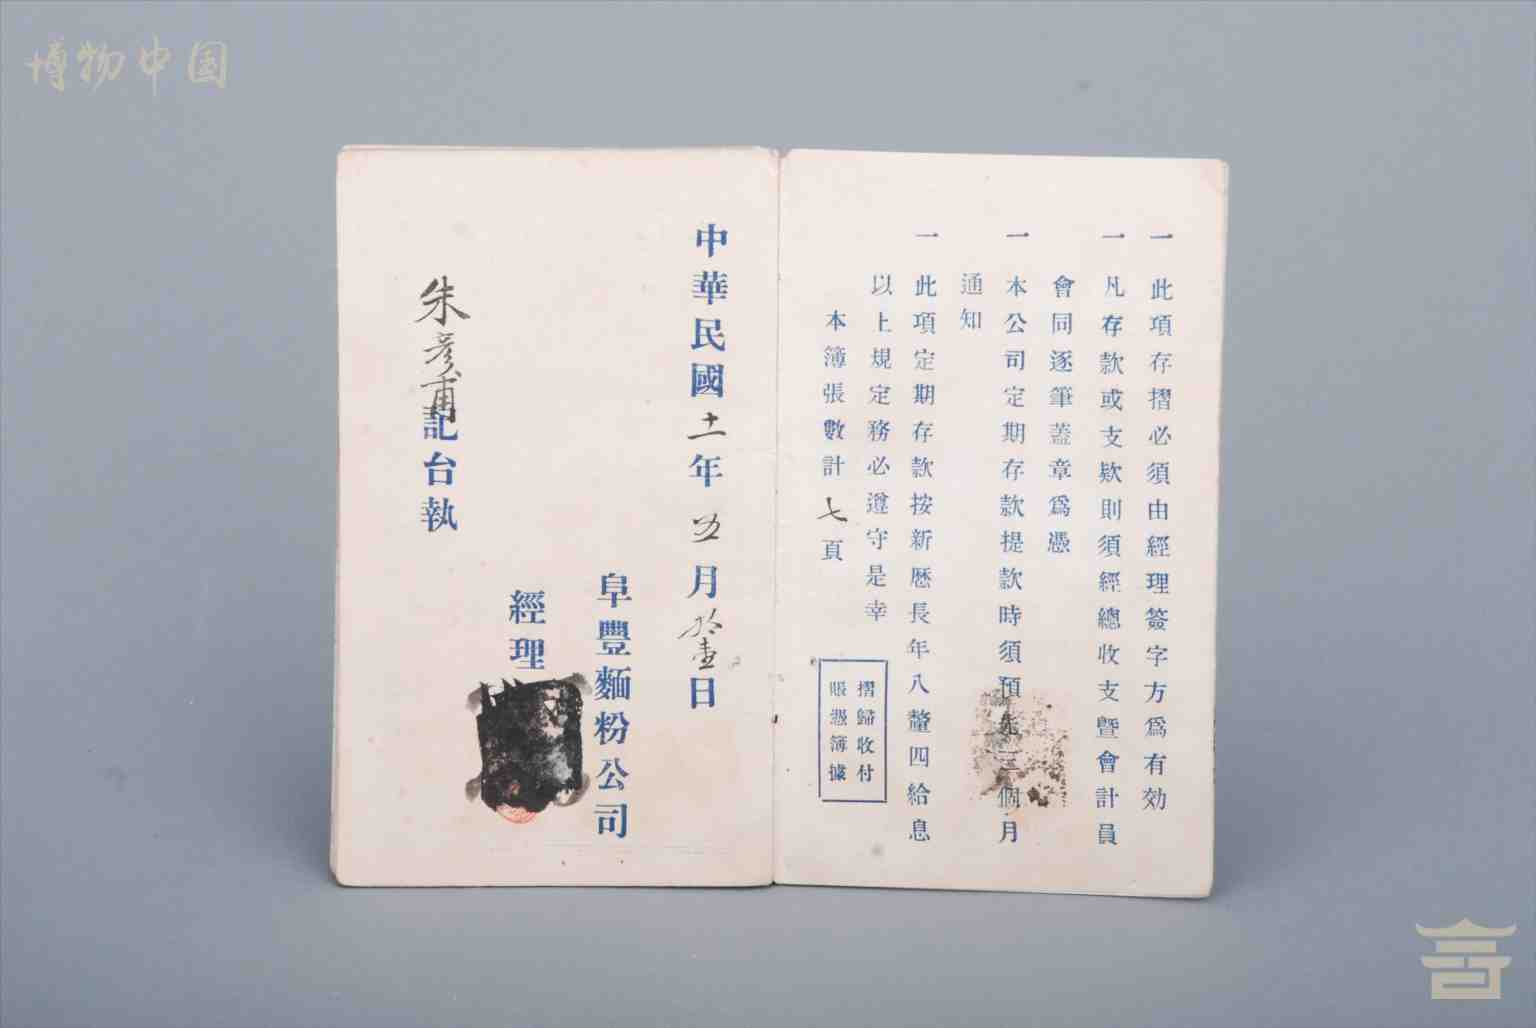 博物中国
一 此項存摺必須由經理簽字方爲有効
一 凡存款或支欵則須經總收支暨會計員
會同逐筆蓋章爲憑
一 本公司定期存款提款時須預先三個月
通知
一 此項定期存款按新厯長年八釐四給息
以上規定務必遵守是幸
本簿張數計七頁
摺歸收付
賬憑簿據
中華民國十一年五月拾壹日
阜豐麵粉公司
經理
朱彦甫記台執